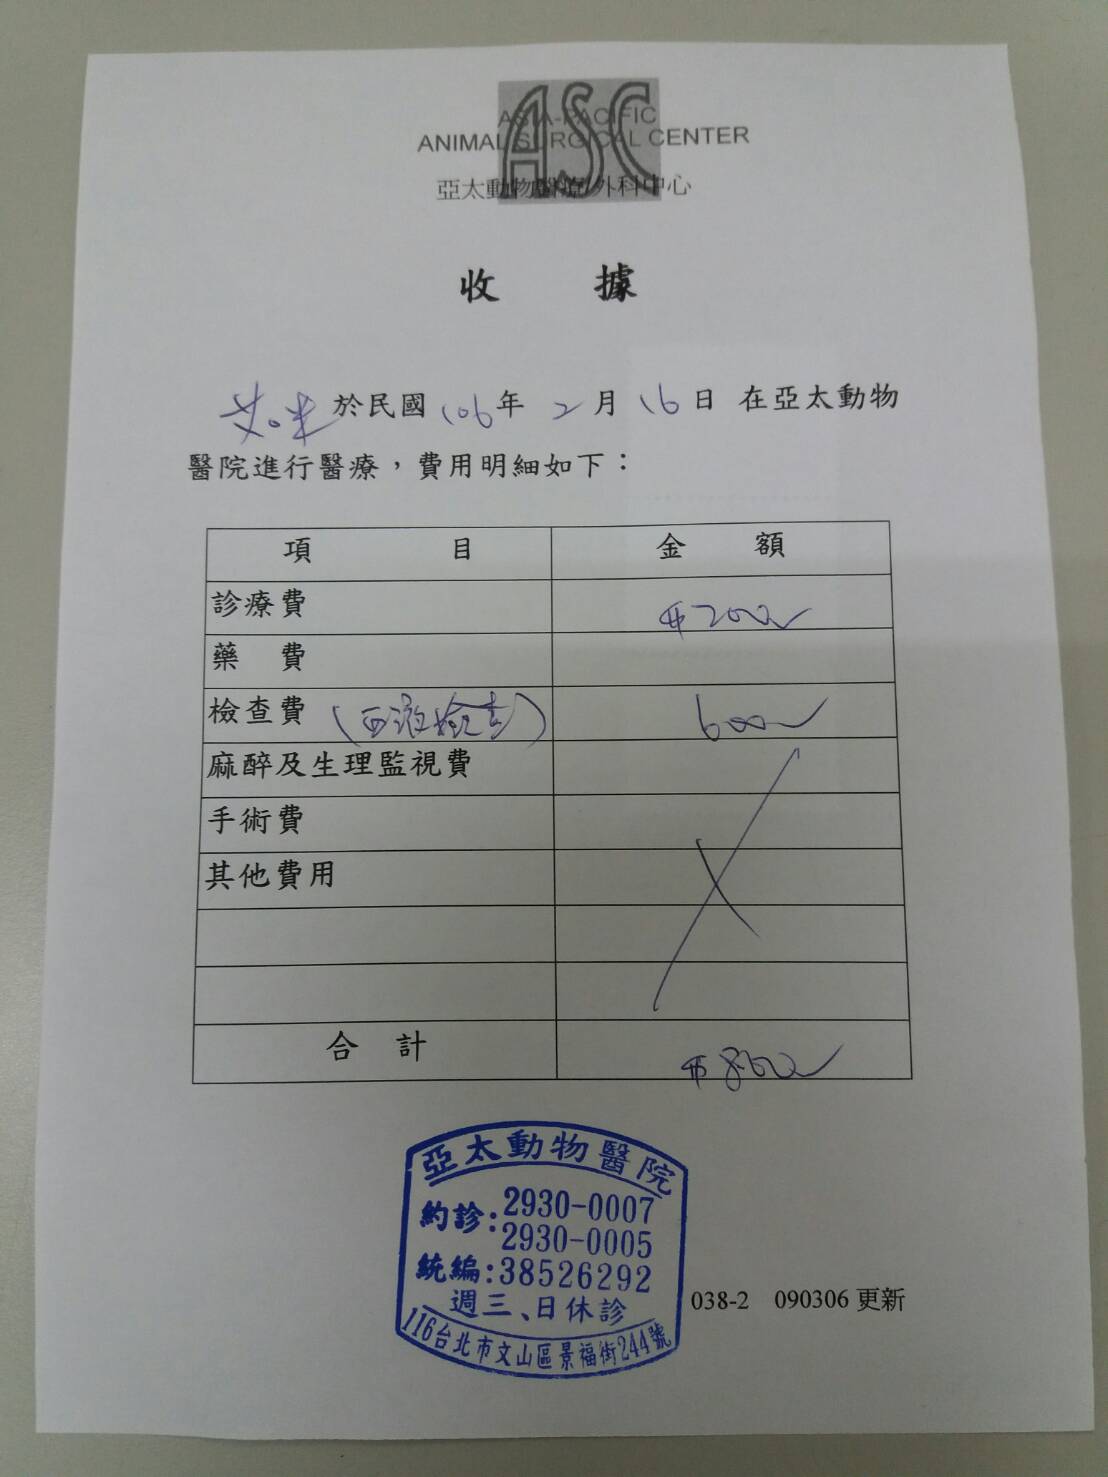 ASC
ASIA-PACIFIC
ANIMAL SURGICAL CENTER
亞太動物醫療外科中心
收 據
艾米於民國106年 2月16日 在亞太動物
醫院進行醫療，費用明細如下：
項 目 金 額
診療費 $200
藥 費
檢查費 (血液檢查) 600
麻醉及生理監視費
手術費
其他費用
合 計 $800
亞太動物醫院
約診:2930-0007
2930-0005
統編:38526292
週三、日休診
116台北市文山區景福街244號
038-2 090306更新